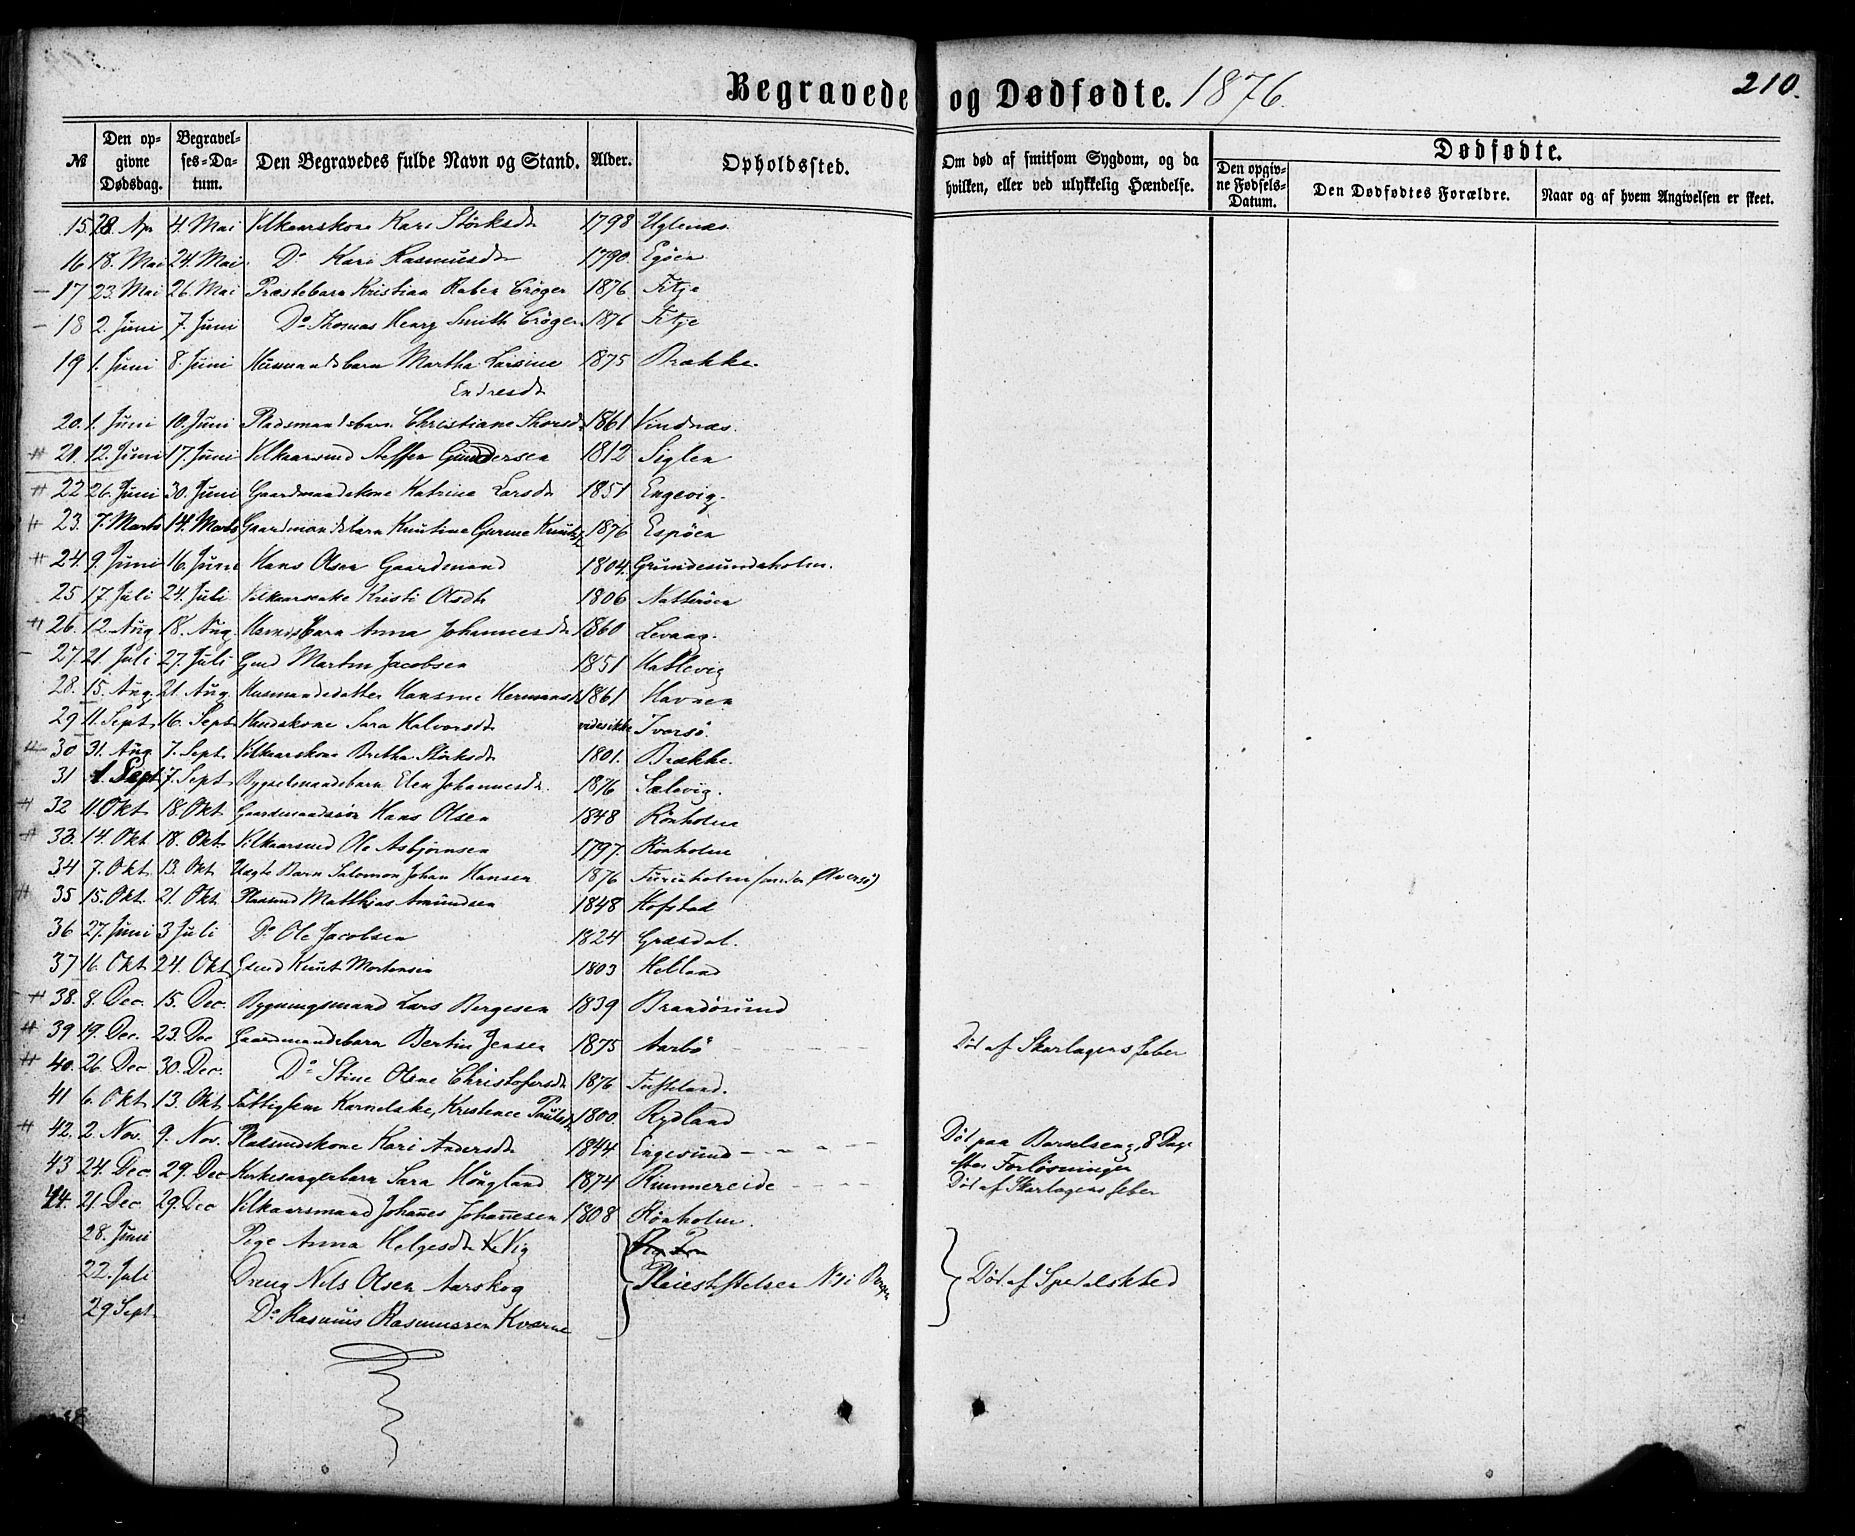 Begravede og Dødfødte. 1876.
210.
№
Den opgivne Dødsdag.
Begravelses-Datum.
Den Begravedes fulde Navn og Stand.
Alder.
Opholdssted.
Om død af smitsom Sygdom, og da hvilken, eller ved ulykkelig Hændelse.
Dødfødte.
Den opgivne Fødsels-Datum.
Den Dødfødtes Forældre.
Naar og af hvem Angivelsen er skeet.
15 28. Apr 4. Mai Vilkaarskone Kari Størksdt 1798 Uglenæs.
16 18. Mai 24. Mai Do Kari Rasmusdt 1790. Egøen
17 23. Mai 26. Mai Præstebarn Kristian Raben Crøger 1876 Fitje
18 2. Juni 7. Juni Do Thomas Henry Smith Crøger 1876 Fitje
19 1. Juni 8. Juni Husmandsbarn Martha Larsine 1875 Brække.
Endresdt
20. 1. Juni 10. Juni Pladsmandsbarn Christiane Thorsd. 1861 Vindnæs.
21. 12. Juni 17. Juni Vilkaarsmd Steffen Gundersen 1812 Siglen
22 26. Juni 30. Juni Gaardmandskone Katrina Larsdt 1851 Engevig.
23. 7. Marts 14. Marts Gaardmandsbarn Knutine Gurine 1876 Espøen
24. 9. Juni 16. Juni Hans Olsen Gaardmand 1804. Grundesundsholm.
25 17. Juli 24. Juli Vilkaarsenke Kristi Olsdt 1806 Natterøen
26. 12. Aug 18. Aug. Anna Johannesdt 1860 Levaag.
27. 21. Juli 27. Juli Gmd Martin Jacobsen 1851 Hatlevig
28. 15. Aug. 21. Aug. Husmandsdatter Hansine Hermansd. 1861 Havnen
29 11. Sept 16. Sept Sara Halvorsdt vides ikke Ivorsø.
30 31. Aug 7. Sept. Vilkaarskone Britha Størksdt 1801. Brække.
31 1. Sept 7. Sept. Bygselmandsbarn Elen Johannesdt. 1876 Sælevig.
32 11. Okt 18. Okt Gaardmandssøn Hans Olsen 1848 Rønholm
33. 14. Okt 18. Okt. Vilkaarsmd Ole Asbjørnsen 1797. Rønholm
34 7. Okt. 13. Okt Uægte Barn Salomon Johan Hansen 1876 Furuholm (under Øversø)
35 15. Okt. 21. Okt. Pladsmd Matthias Amundsen 1848 Hofstad
36 27. Juni 3 Juli Do Ole Jacobsen 1824 Græsdal.
37 16. Okt 24. Okt. Knut Mortensen 1803 Helland
38. 8. Dec. 15. Dec. Bygningsmand Lars Bergesen 1839 Brandøsund
39 19. Dec. 23. Dec Gaardmandsbarn Bertin Jensen 1875 Aarbø Død af Skarlagensfeber
40. 26. Dec 30. Dec. Do Stine Olsine Christofersdt 1876 Tufteland.
41 6. Okt 13. Okt Fattiglem Karnelske, Kristence 1800. Rydland
42. 2. Nov. 9. Nov. Pladsmdskone Kari Andersdt 1844. Engesund Død paa Barselseng, 8 Dage
efter Forløsningen
43 24. Dec 29. Dec Kirkesangerbarn Sara Hougland 1874 Rummereide Død af Skarlagensfeber
44. 21. Dec 29. Dec Vilkaarsmand Johañes Johañesen 1808 Rønholm.
28. Juni Pige Anna Helgesdt Vig
22. Juli Dreng Nils Olsen Aarskog Pleiestiftelsen No 1 i Bergen Død af Spedalskhed
29 Sept. Do Rasmus Rasmussen Kværne